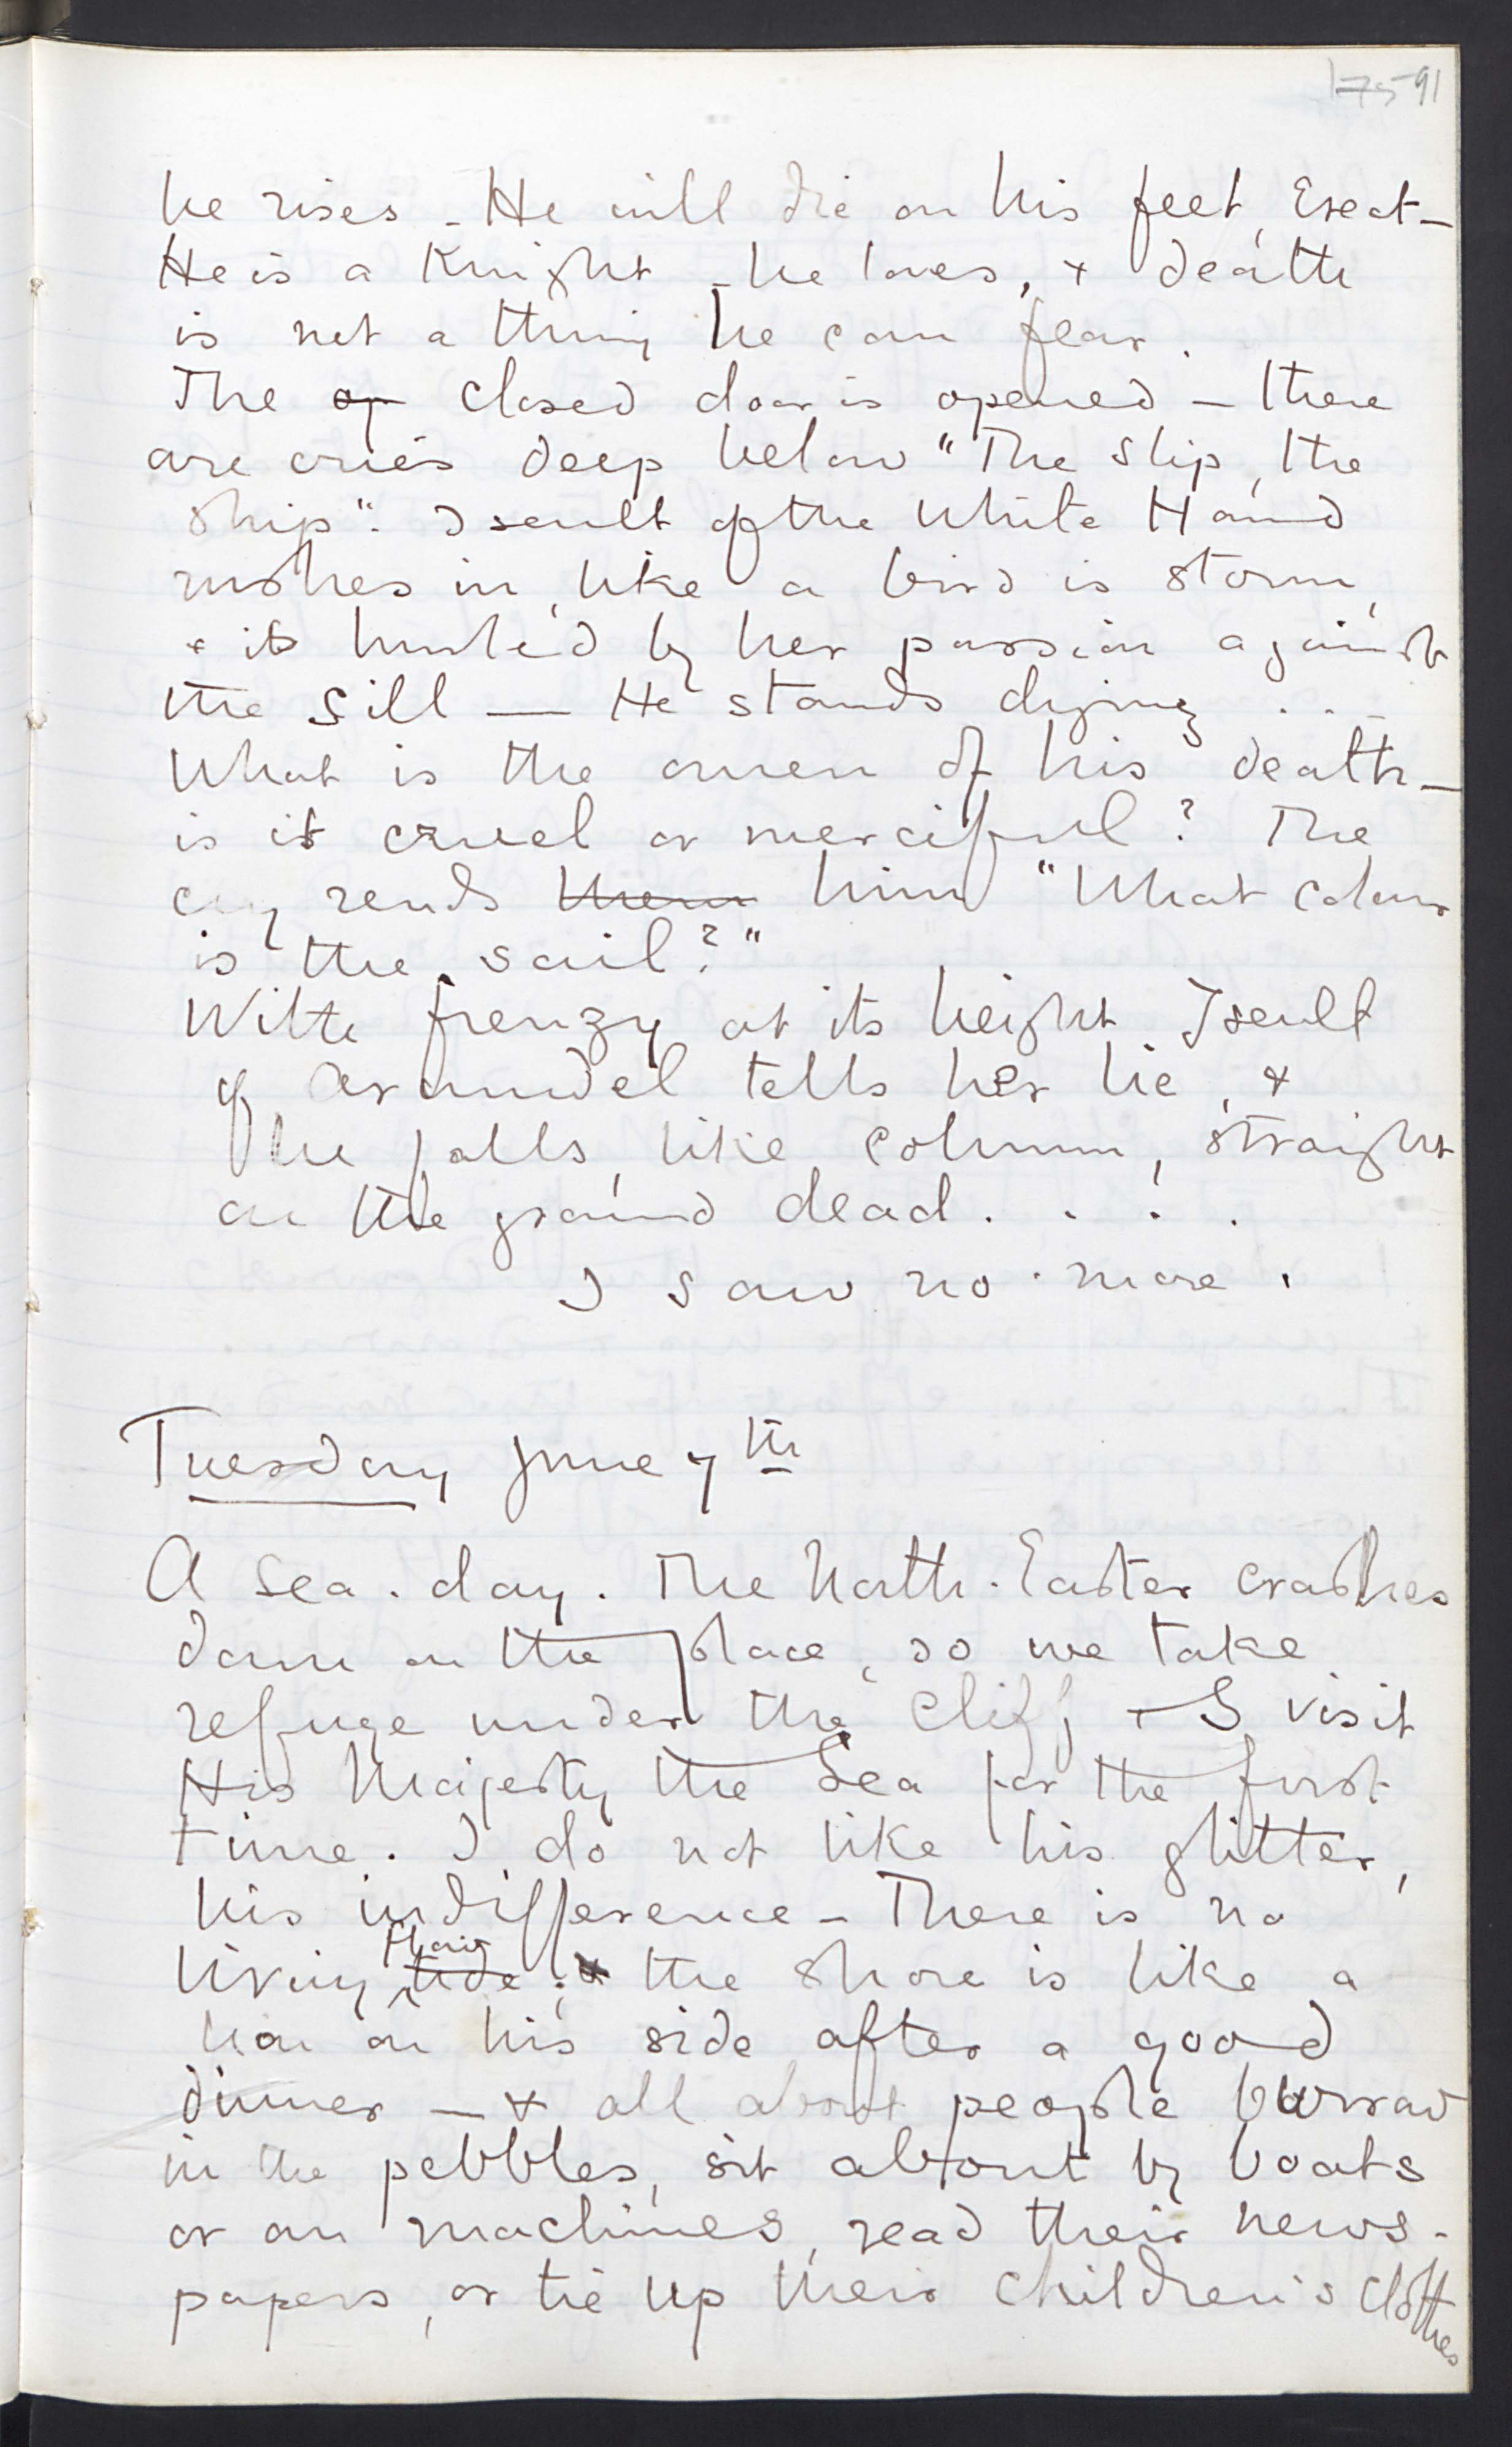 175 91
he rises - He will die on his feet, Erect -
He is a Knight - he loves, & death
is not a thing he can fear.
The op closed door is opened - there
are cries deep below "The Ship, the
Ship". Iseult of the White Hand
rushes in, like a bird is storm,
& is hurled by her passion against
the sill — He stands dying . . .
What is the omen of his death -
is it cruel or merciful? The
cry rends them him "What colour
is the sail?"
With frenzy at its height Iseult
of Arundel tells her lie, &
he falls, like column, straight
on the ground dead. . . .
I saw no more.
Tuesday June 7th
A Sea-day. The North-Easter crashes
down on the place, so we take
refuge under the cliff & I visit
His Majesty the Sea for the first
time. I do not like his glitter,
his indifference - There is no
thing
living tide; & the shore is like a
lion on his side after a good
dinner — & all about people burrow
in the pebbles, sit about by boats
or on machines, read their news-
papers, or tie up their children's clothes